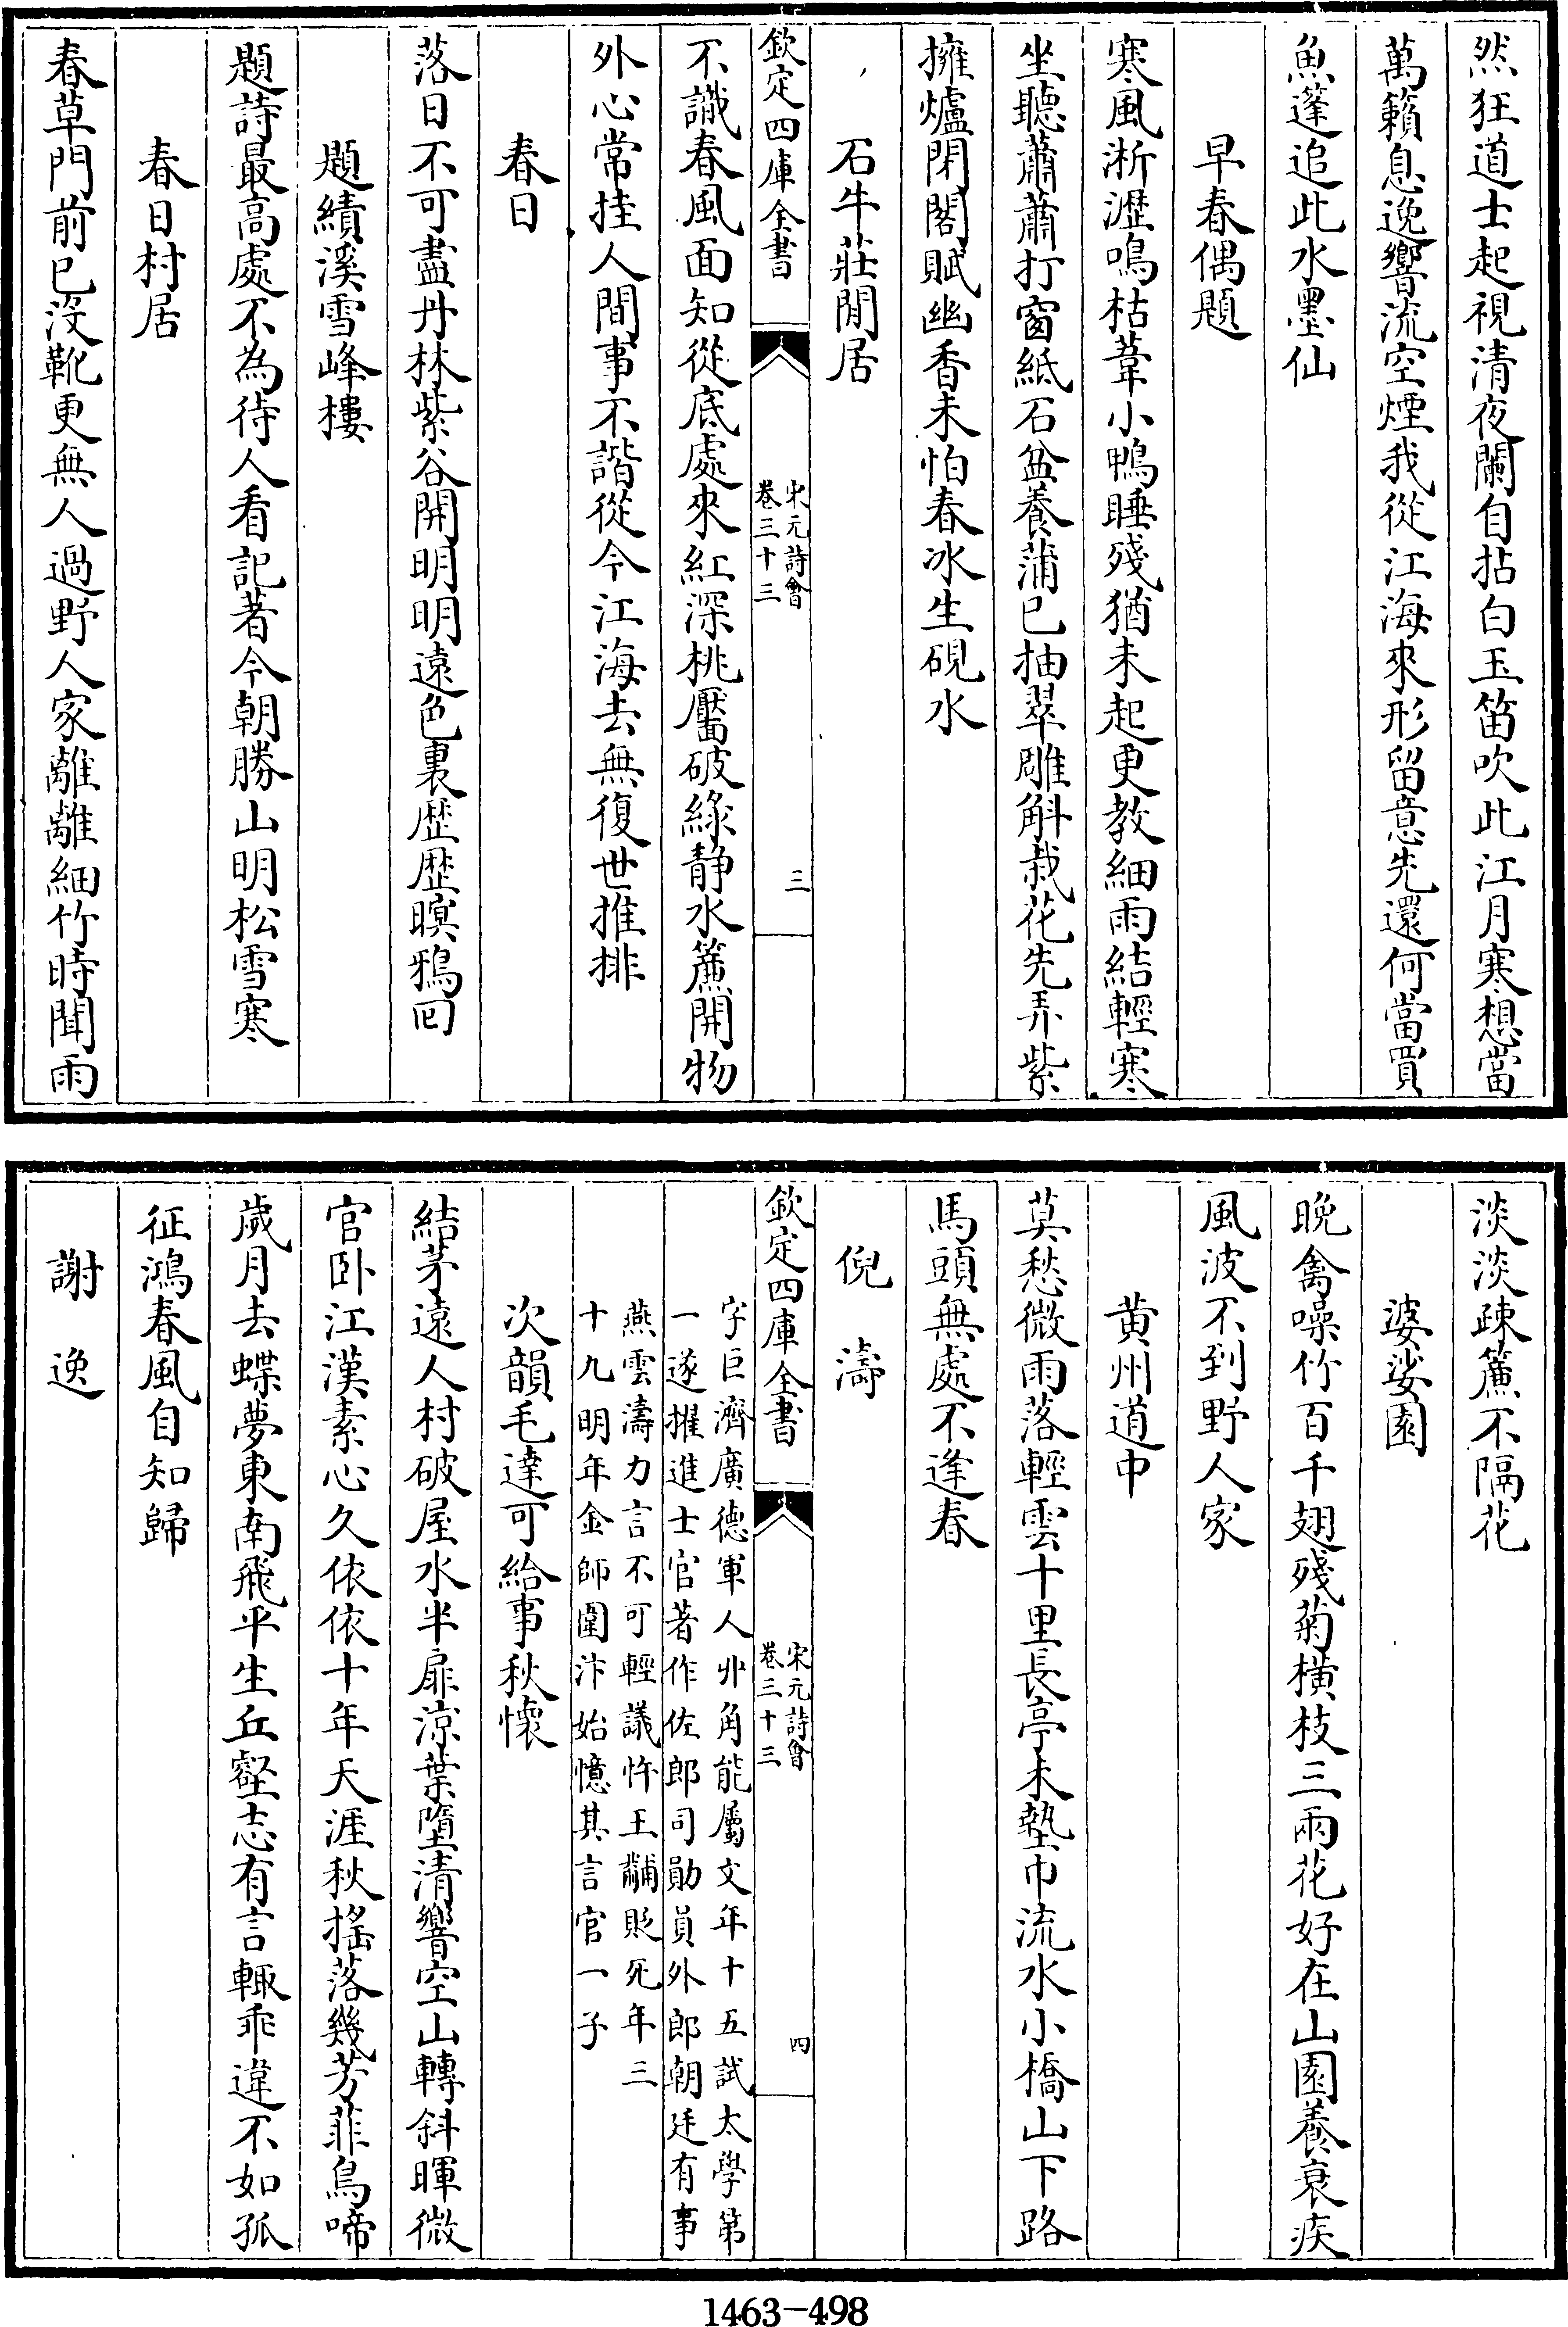 然狂道士起視清夜闌自拈白玉笛吹此江月寒想當
萬籟息逸響流空煙我從江海來形留意先還何當買
魚蓬追此水墨仙
早春偶題
寒風淅瀝鳴枯葦小鴨睡殘猶未起更教細雨結輕寒
坐聽蕭蕭打窗紙石盆養蒲已抽翠雕斛栽花先弄紫
擁爐閉閣賦幽香未怕春冰生硯水
石牛莊閒居
欽定四庫全書
宋元詩會
卷三十三
三
不識春風面知從底處來紅深桃靨破綠靜水簾開物
外心常挂人間事不諧從今江海去無復世推排
春日
落日不可盡丹林紫谷開明明遠色裏歷歷暝鴉回
題績溪雪峰樓
題詩最高處不為待人看記著今朝勝山明松雪寒
春日村居
春草門前已沒靴更無人過野人家離離細竹時聞雨
淡淡疎簾不隔花
婆娑園
晚禽噪竹百千翅殘菊橫枝三兩花好在山園養衰疾
風波不到野人家
黄州道中
莫愁微雨落輕雲十里長亭未墊巾流水小橋山下路
馬頭無處不逢春
倪濤
欽定四庫全書
宋元詩會
卷三十三
四
字巨濟廣德軍人丱角能屬文年十五試太學第
一遂擢進士官著作佐郎司勛員外郎朝廷有事
燕雲濤力言不可輕議忤王黼貶死年三
十九明年金師圍汴始憶其言官一子
次韻毛達可給事秋懷
結茅遠人村破屋水半扉涼葉墮清響空山轉斜暉微
官卧江漢素心久依依十年天涯秋搖落幾芳菲鳥啼
歲月去蝶夢東南飛平生丘壑志有言輒乖違不如孤
征鴻春風自知歸
謝逸
1463-498